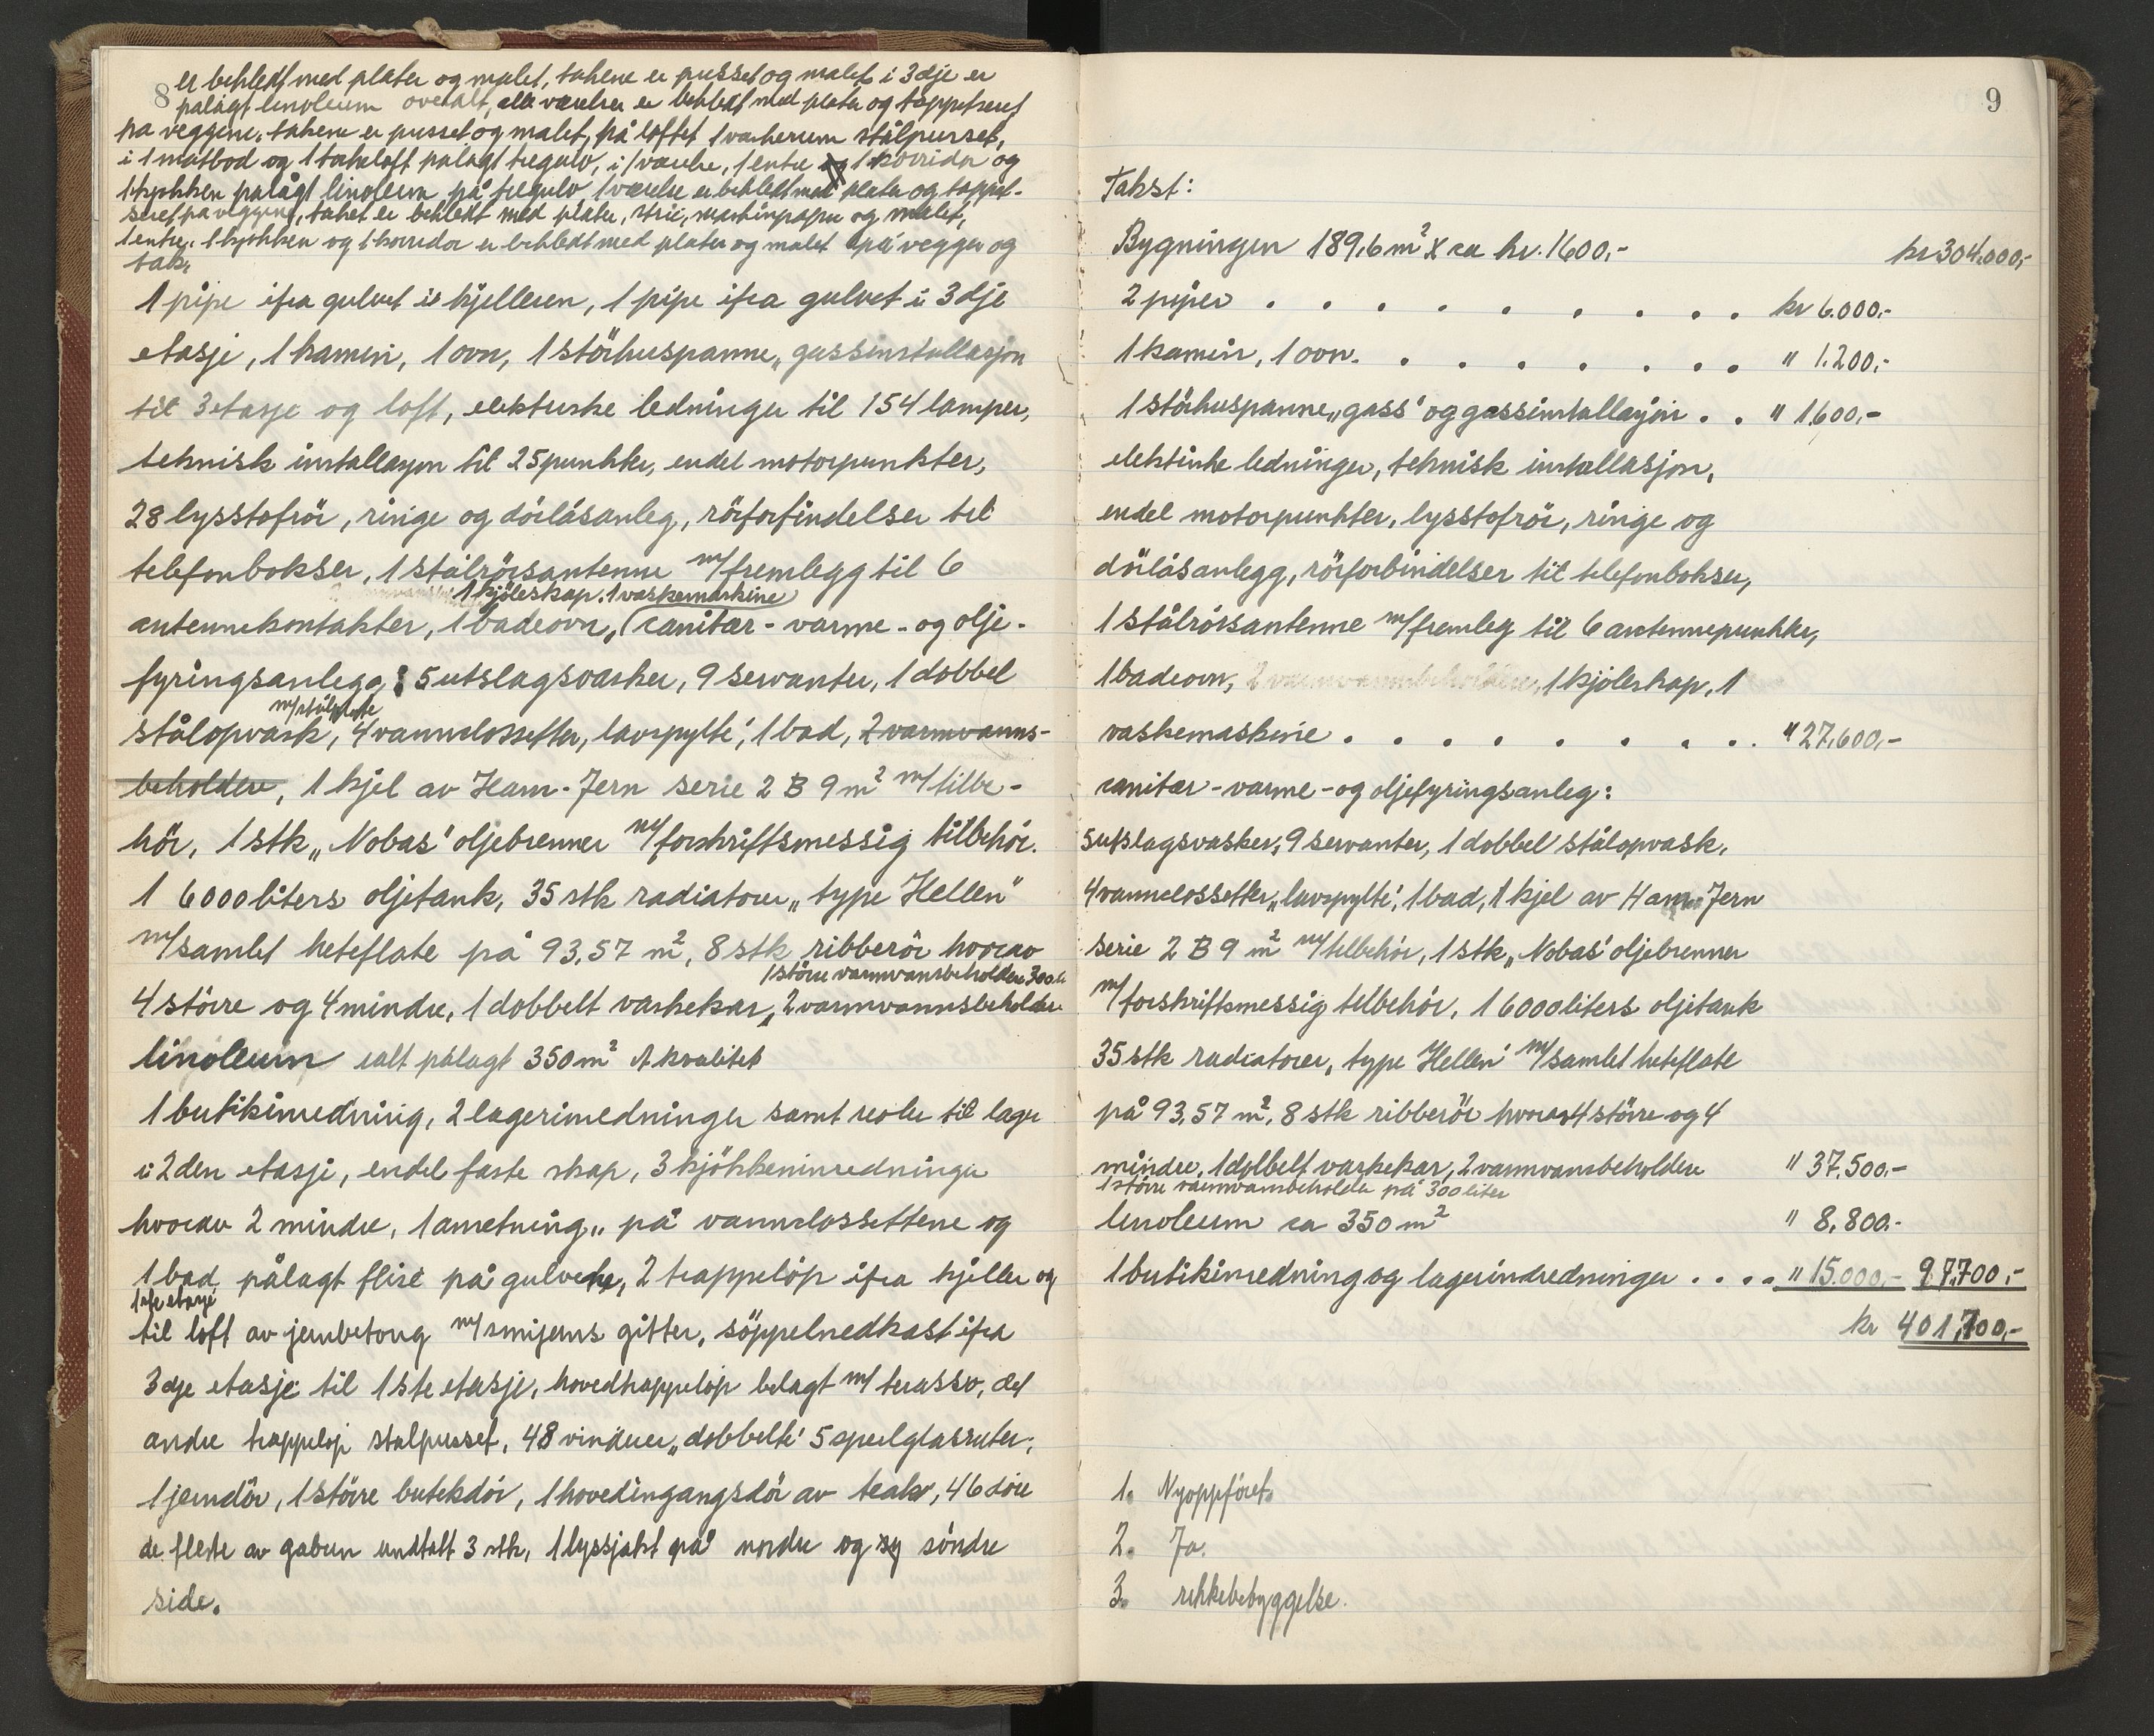 8
er bekledt med plater og malet, takene er pusset og malet i 3dje er
pålagt linoleum overalt, alle værelser er bekledt med plater og tappetseret
på veggene, takene er pusset og malet, på loftet 1 vaskerum stålpusset,
i 1 matbod og 1 tørkeloft pålagt tregulv, i 1 værelse, 1 entre og 1 korridor og
1 kjøkken pålagt linoleum på tregulv 1 værelse er bekledt med plater og tappet-
seret på veggene, taket er bekledt med plater, strie, maskinpapir og malet,
1 entre, 1 kjøkken og 1 korridor er bekledt med plater og malet på vegger og
tak.
1 pipe ifra gulvet i kjelleren, 1 pipe ifra gulvet i 3dje
etasje, 1 kamin, 1 ovn, 1 störhuspanne, gassinstallasjon
til 3 etasje og loft, elektriske ledninger til 154 lamper,
teknisk installasjon til 25 punkter, endel motorpunkter,
28 lysstofrör, ringe og dörlåsanleg, rörforfindelser til
telefonbokser, 1 stålrörsantenne m/fremlegg til 6
1 kjöleskap. 1 vaskemaskine
antennekontakter, 1 badeovn, sanitær - varme - og olje-
fyringsanlegg: 5 utslagsvasker, 9 servanter, 1 dobbel
m/stålplate
stålopvask, 4 vannclossetter, lavspylte', 1 bad, 2 varmvanns-
beholdere, 1 kjel av Ham-Jern serie 2 B 9 m² m/tilbe-
hör, 1 stk „Nobas' oljebrenner m/forskriftsmessig tilbehör.
1 6000 liters oljetank, 35 stk radiatorer „type Hellen"
m/samlet heteflate på 93,57 m², 8 stk ribberör hvorav
1 större varmvansbeholdere 300 l.
4 större og 4 mindre, 1 dobbelt vaskekar, 2 varmvannsbeholdere
linoleum ialt pålagt 350 m² A kvalitet
1 butikinredning, 2 lagerinredninger samt reoler til lager
i 2den etasje, endel faste skap, 3 kjökkeninredninger
hvorav 2 mindre, 1 anretning, på vannclossettene og
1 bad pålagt flise på gulvene, 2 trappelöp ifra kjeller og
1ste etasje
til loft av jernbetong m/smijerns gitter, söppelnedkast ifra
3dje etasje til 1ste etasje, hovedtrappelöp belagt m/terasso, det
andre trappelöp stålpusset, 48 vinduer „dobbelte' 5 speilglasruter,
1 jerndör, 1 större butikdör, 1 hovedingangsdör av teak, 46 döre
de fleste av gabun undtatt 3 stk, 1 lyssjakt på nordre og söndre
side.
9
Takst:
Bygningen 189,6 m² x ca kr. 1600,- kr 304.000,-
2 piper . . . . . . . . . kr 6.000,-
1 kamin, 1 ovn. . . . . . . . " 1.200,-
1 störhuspanne „gass' og gassinstallasjon . . " 1.600,-
elektriske ledninger, teknisk installasjon,
endel motorpunkter, lysstofrör, ringe og
dörlåsanlegg, rörforbindelser til telefonbokser,
1 stålrörsantenne m/fremleg til 6 antennepunkter,
1 badeovn, 2 varmvannsbeholdere, 1 kjöleskap, 1
vaskemaskine . . . . . . . . . " 27,600,-
sanitær - varme - og oljefyringsanleg:
5 utslagsvasker, 9 servanter, 1 dobbel stålopvask,
4 vannclossetter, „lavspylte', 1 bad, 1 kjel av Ham-Jern
serie 2 B 9 m² m/tilbehör, 1 stk „Nobas' oljebrenner
m/forskriftsmessig tilbehör, 1 6000 liters oljetank
35 stk radiatorer, type Hellen' m/samlet heteflate
på 93,57 m², 8 stk ribberör hvorav 4 större og 4
mindre, 1 dobbelt vaskekar, 2 varmvansbeholdere " 37,500,-
1 större varmvansbeholder på 300 liter
linoleum ca 350 m² " 8,800.-
1 butikinredning og lagerindredninger . . . . " 15.000,- 97,700,-
kr 401,700,-
1. Nyoppfört.
2. Ja.
3. rekkebebyggelse.